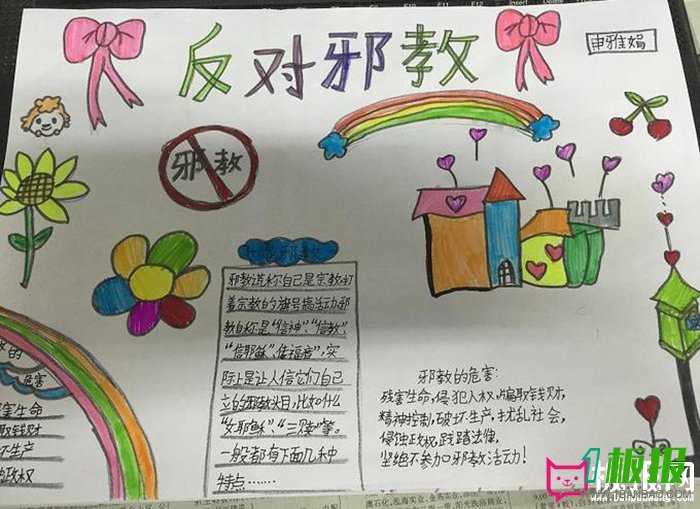 反对邪教
申雅娟
邪教
什么是邪教
邪教谎称自己是宗教,打
着宗教的旗号搞活动。邪
教自称是“信神”“信教”
“信耶稣”、传福音”,实
际上是让人信它们自己
立的邪教头目,比如什么
“女耶稣”、“三赎”等。
一般都有下面几种
特点……
邪教的危害:
残害生命,侵犯人权,骗取钱财,
精神控制,破坏生产,扰乱社会,
侵蚀政权,践踏法律,
坚绝不参加邪教活动!
教的
危害
害生命
取钱财
坏生产
政权
1板报